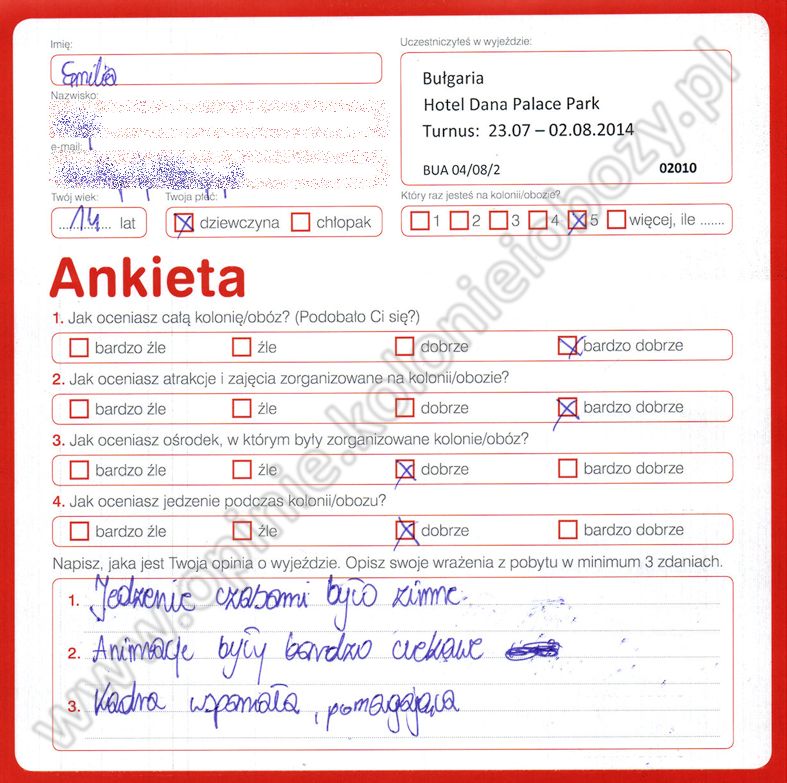 Imię:
Uczestniczyłeś w wyjeździe:
Emilia
Bułgaria
Hotel Dana Palace Park
Turnus: 23.07 – 02.08.2014
BUA 04/08/2 02010
Nazwisko:
e-mail:
Twój wiek:
Twoja płeć:
Który raz jesteś na kolonii/obozie?
14 lat
dziewczyna chłopak
1 2 3 4 5 więcej, ile .......
Ankieta
1. Jak oceniasz całą kolonię/obóz? (Podobało Ci się?)
bardzo źle źle dobrze bardzo dobrze
2. Jak oceniasz atrakcje i zajęcia zorganizowane na kolonii/obozie?
bardzo źle źle dobrze bardzo dobrze
3. Jak oceniasz ośrodek, w którym były zorganizowane kolonie/obóz?
bardzo źle źle dobrze bardzo dobrze
4. Jak oceniasz jedzenie podczas kolonii/obozu?
bardzo źle źle dobrze bardzo dobrze
Napisz, jaka jest Twoja opinia o wyjeździe. Opisz swoje wrażenia z pobytu w minimum 3 zdaniach.
1. Jedzenie czasami było zimne.
2. Animacje były bardzo ciekawe
3. Kadra wspaniała, pomagająca
www.opinie.kolonieiobozy.pl